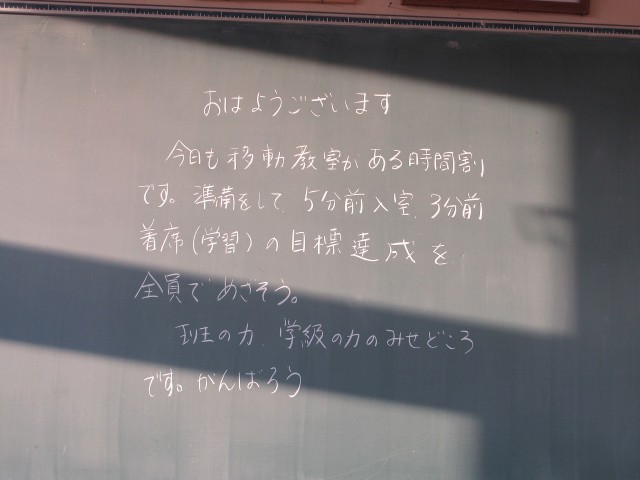 おはようございます
今日も移動教室がある時間割
です。準備をして、5分前入室、3分前
着席(学習)の目標達成を
全員でめざそう。
班の力、学級の力のみせどころ
です。がんばろう